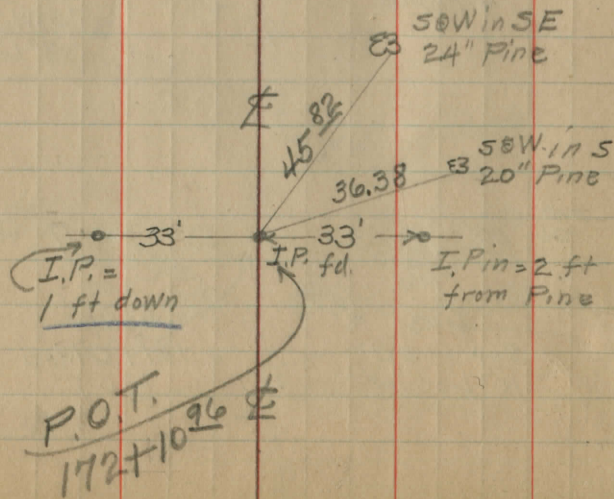 S⊙W in SE
24" Pine
℄
45 82
S⊙W in S
20" Pine
36.38
33'
33'
I.P. fd.
I.P. =
1 ft down
I.Pin = 2 ft
from Pine
℄
P.O.T.
172+10 96